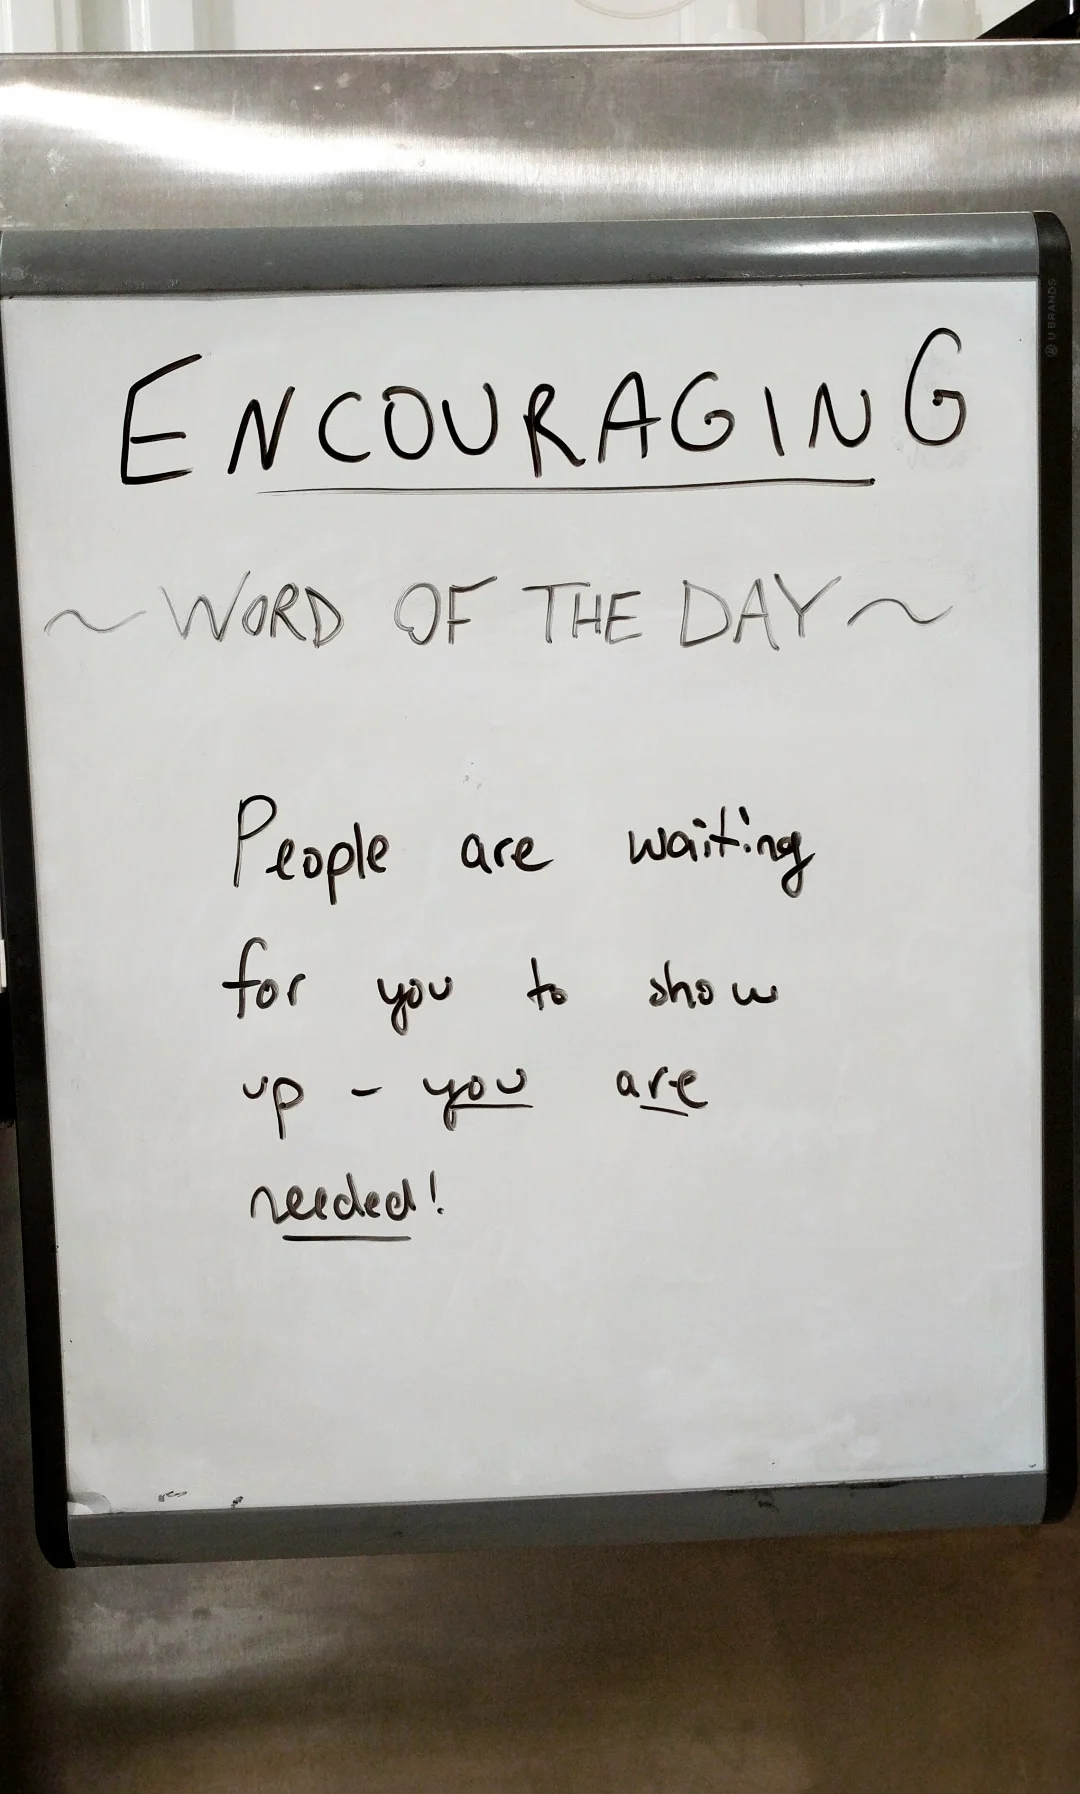 ENCOURAGING
~ WORD OF THE DAY ~
People are waiting
for you to show
up - you are
needed!
U BRANDS